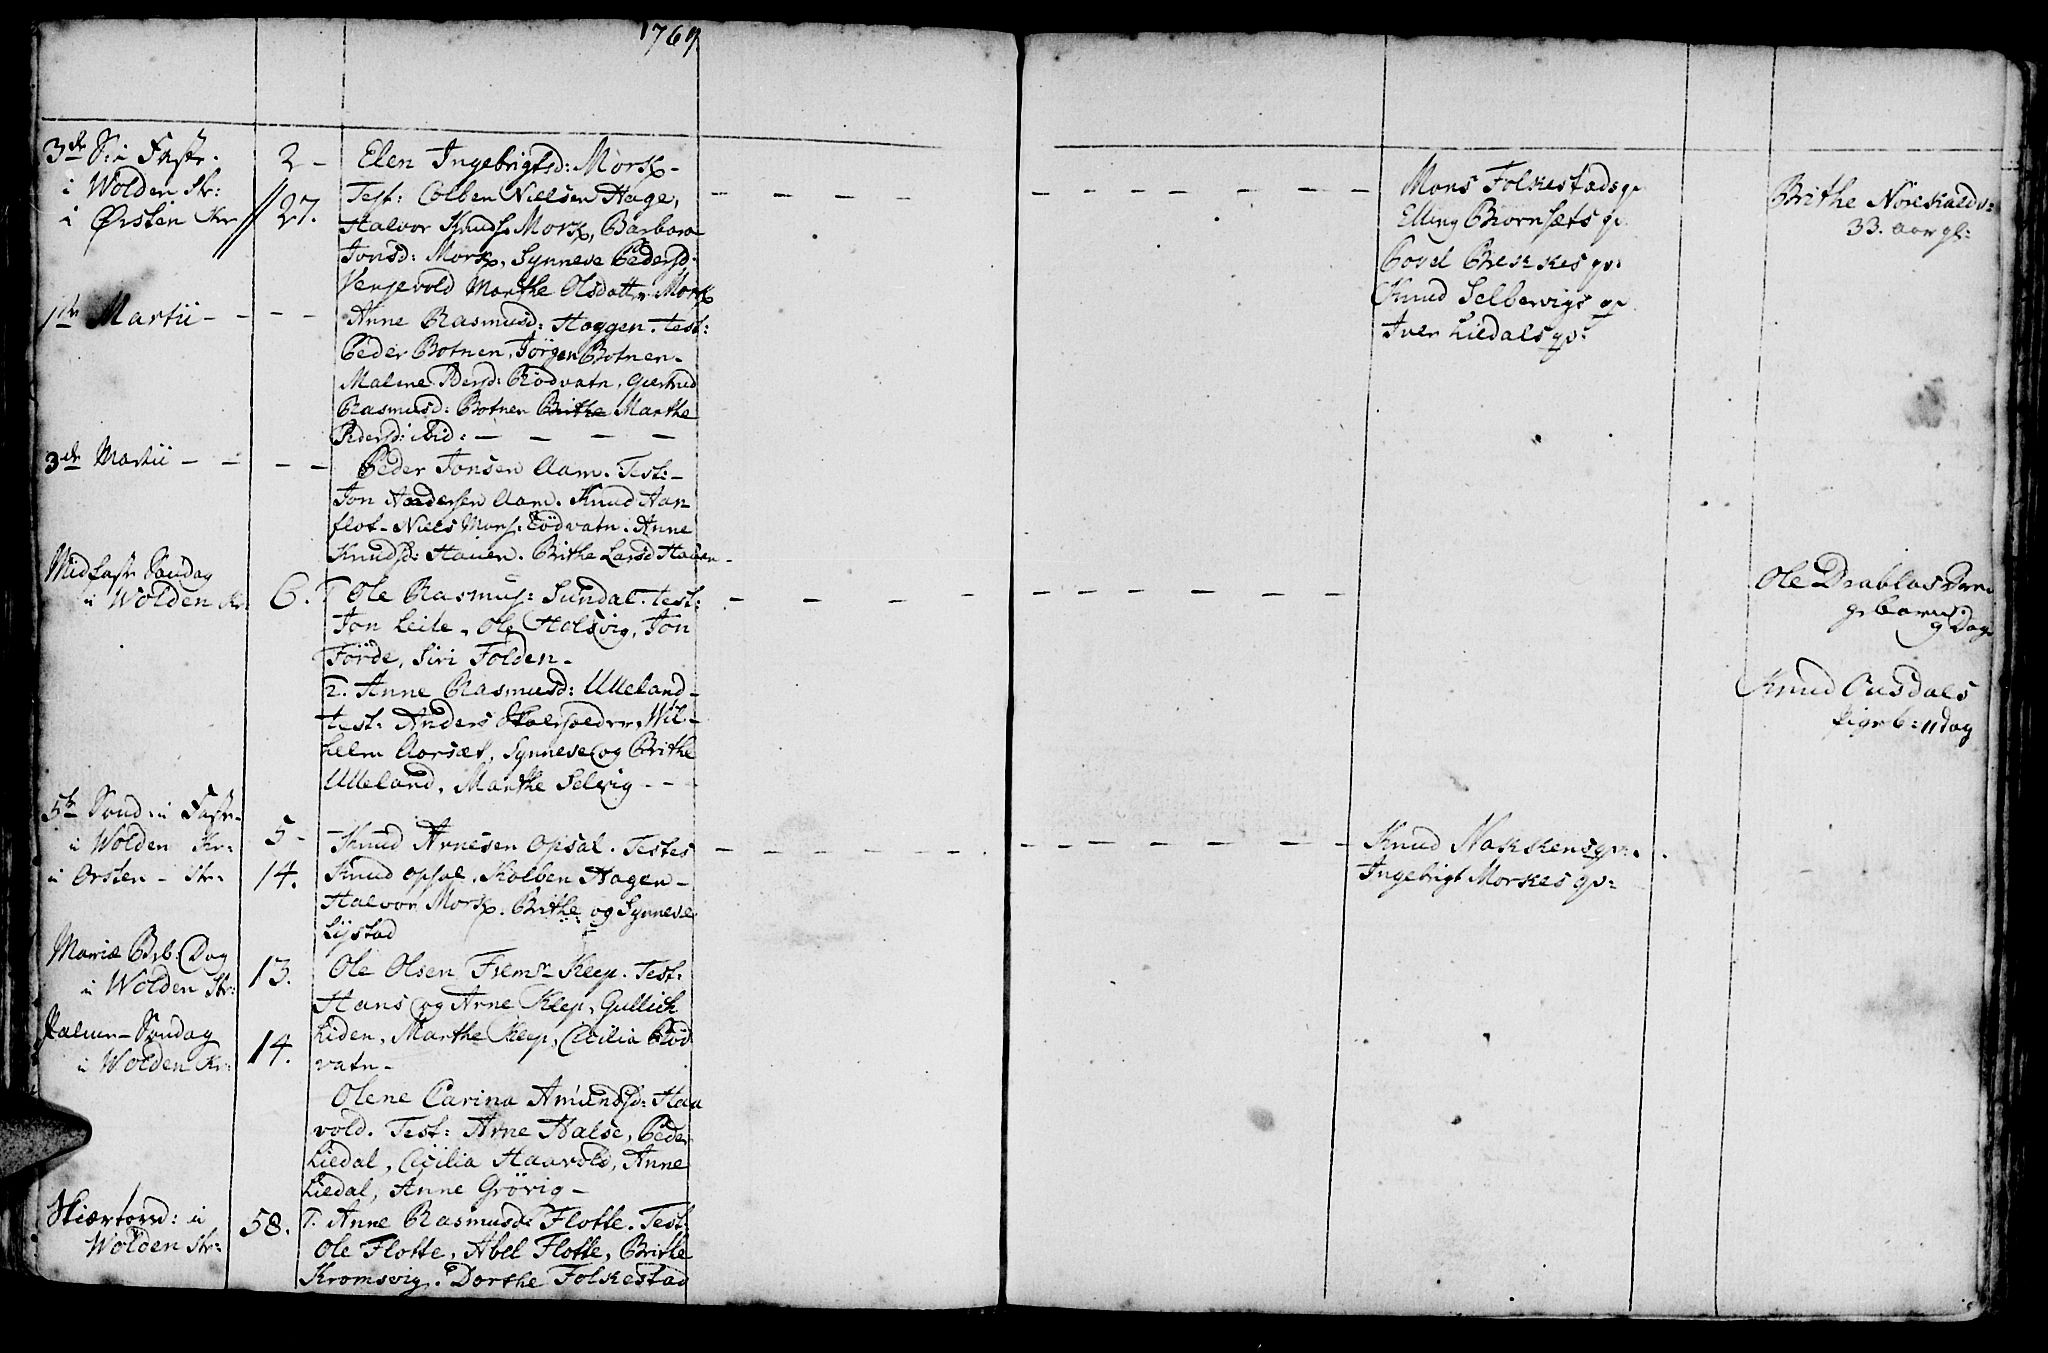 1769
3de S: i Faste.
i Wolden Kr:
i Ørsten Kr
2 -
27.
Elen Ingebrigtsd: Mork -
Test: Colben Nielsen Hage,
Halvor Knuds. Mork, Barbara
Jonsd: Mork, Synneve Pedersd:
Vengevold Marthe Olsdatter Mork
Mons Folkestads qv.
Elling Biørnsets qv.
Povel Brekkes qv:
Knud Selbervigs qv
Iver Liedals qv:
Brithe Norekaldv:
33. aar gl:
1te Martii - - - -
Anne Rasmusd: Haggen. test:
Peder Botnen, Jørgen Botnen -
Malene Persd: Rødvatn, Giertrud
Rasmusd: Botnen Brithe Marthe
Pedersd: ibid: - - - -
3de Martii - - - -
Peder Jonsen Aam. Test: -
Jon Andersen Aam. Knud Aan
flot - Niels Mons: Rødvatn. Anne
Knudsd: Hauen. Brithe Larsd Hauen -
Midfaste Søndag
i Wolden Kr:
6.
1. Ole Rasmus: Sundal. test:
Jon Leite, Ole Halsvig, Jon
Førde, Siri Folden -
2. Anne Rasmusd: Ulleland -
test: Anders
helm Aarset, Synneve og Brithe
Ulleland, Marthe Selvig - -
Ole Drablos Dren
gebarn
9 Dag
Knud Ousdals
pigeb: 11 dag
5te Sønd: i Faste -
i Wolden Kr:
i Ørsten - Kr:
5 -
14.
Knud Arnesen Opsal. Testes
Knud Opsal, Kolben Hagen -
Halvor Mork. Brithe og Synneve
Lystad
Knud Nakkens qv: .
Ingebrigt Morkes qv:
Mariæ Beb. Dag
i Wolden Kr:
13.
Ole Olsen Frems - Klep. Test:
Hans og Arne Klep, Gullich
Liden, Marthe Klep, Cicilia Rød
vatn -
Palme - Søndag
i Wolden Kr:
14.
Olene Carina Amundsd: Haa
vold. Test: Arne Halse, Peder
Liedal, Cicilia Haavold, Anne
Liedal, Anne Grøvig -
Skiærtorsd: i
Wolden Kr:
58.
1. Anne Rasmusd: Flotte. Test:
Ole Flotte, Abel Flotte, Brithe
Kromsvig. Dorthe Folkestad